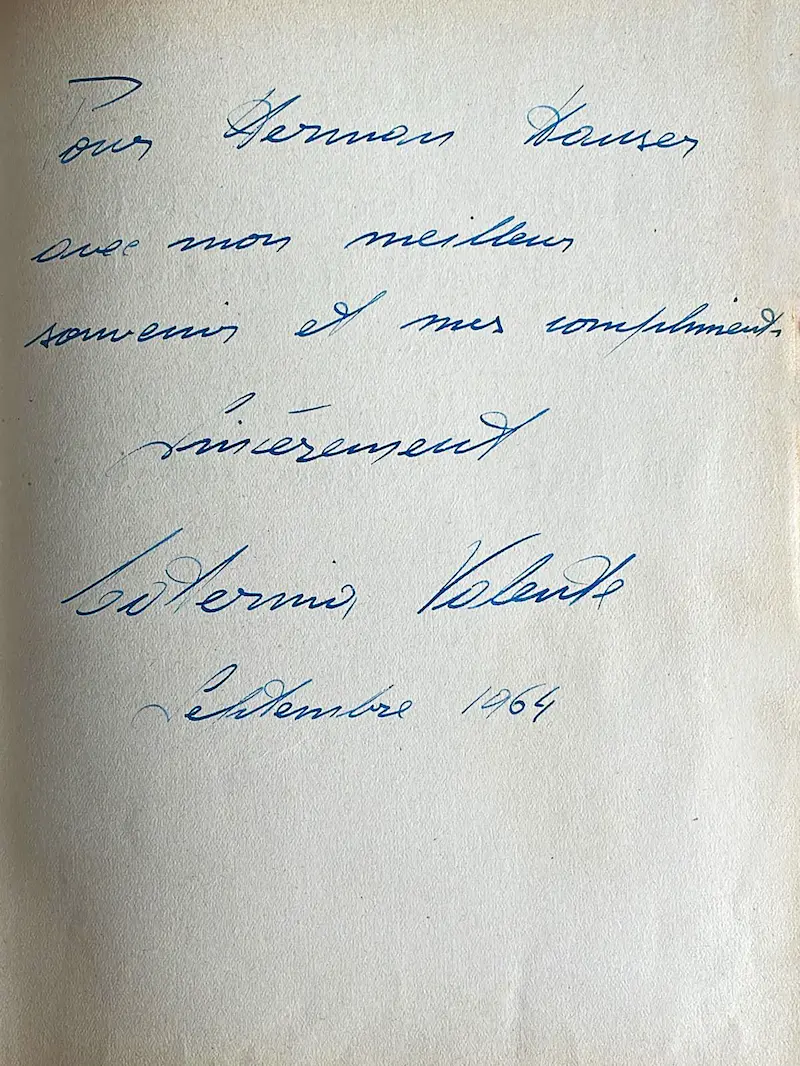 Pour Herman Hauser
avec mon meilleur
souvenir et mes compliments
Sincèrement
Caterina Valente
Septembre 1964